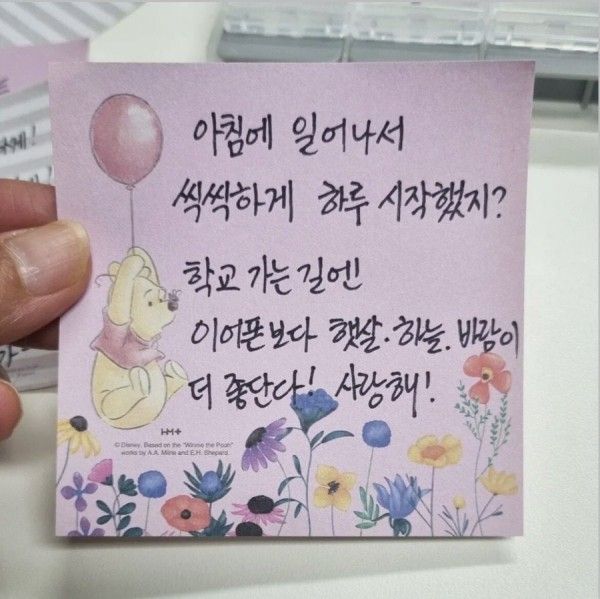 아침에 일어나서
씩씩하게 하루 시작했지?
학교 가는 길엔
이어폰보다 햇살.하늘.바람이
더 좋단다! 사랑해!
HM+
© Disney. Based on the "Winnie the Pooh"
works by A.A. Milne and E.H. Shepard.